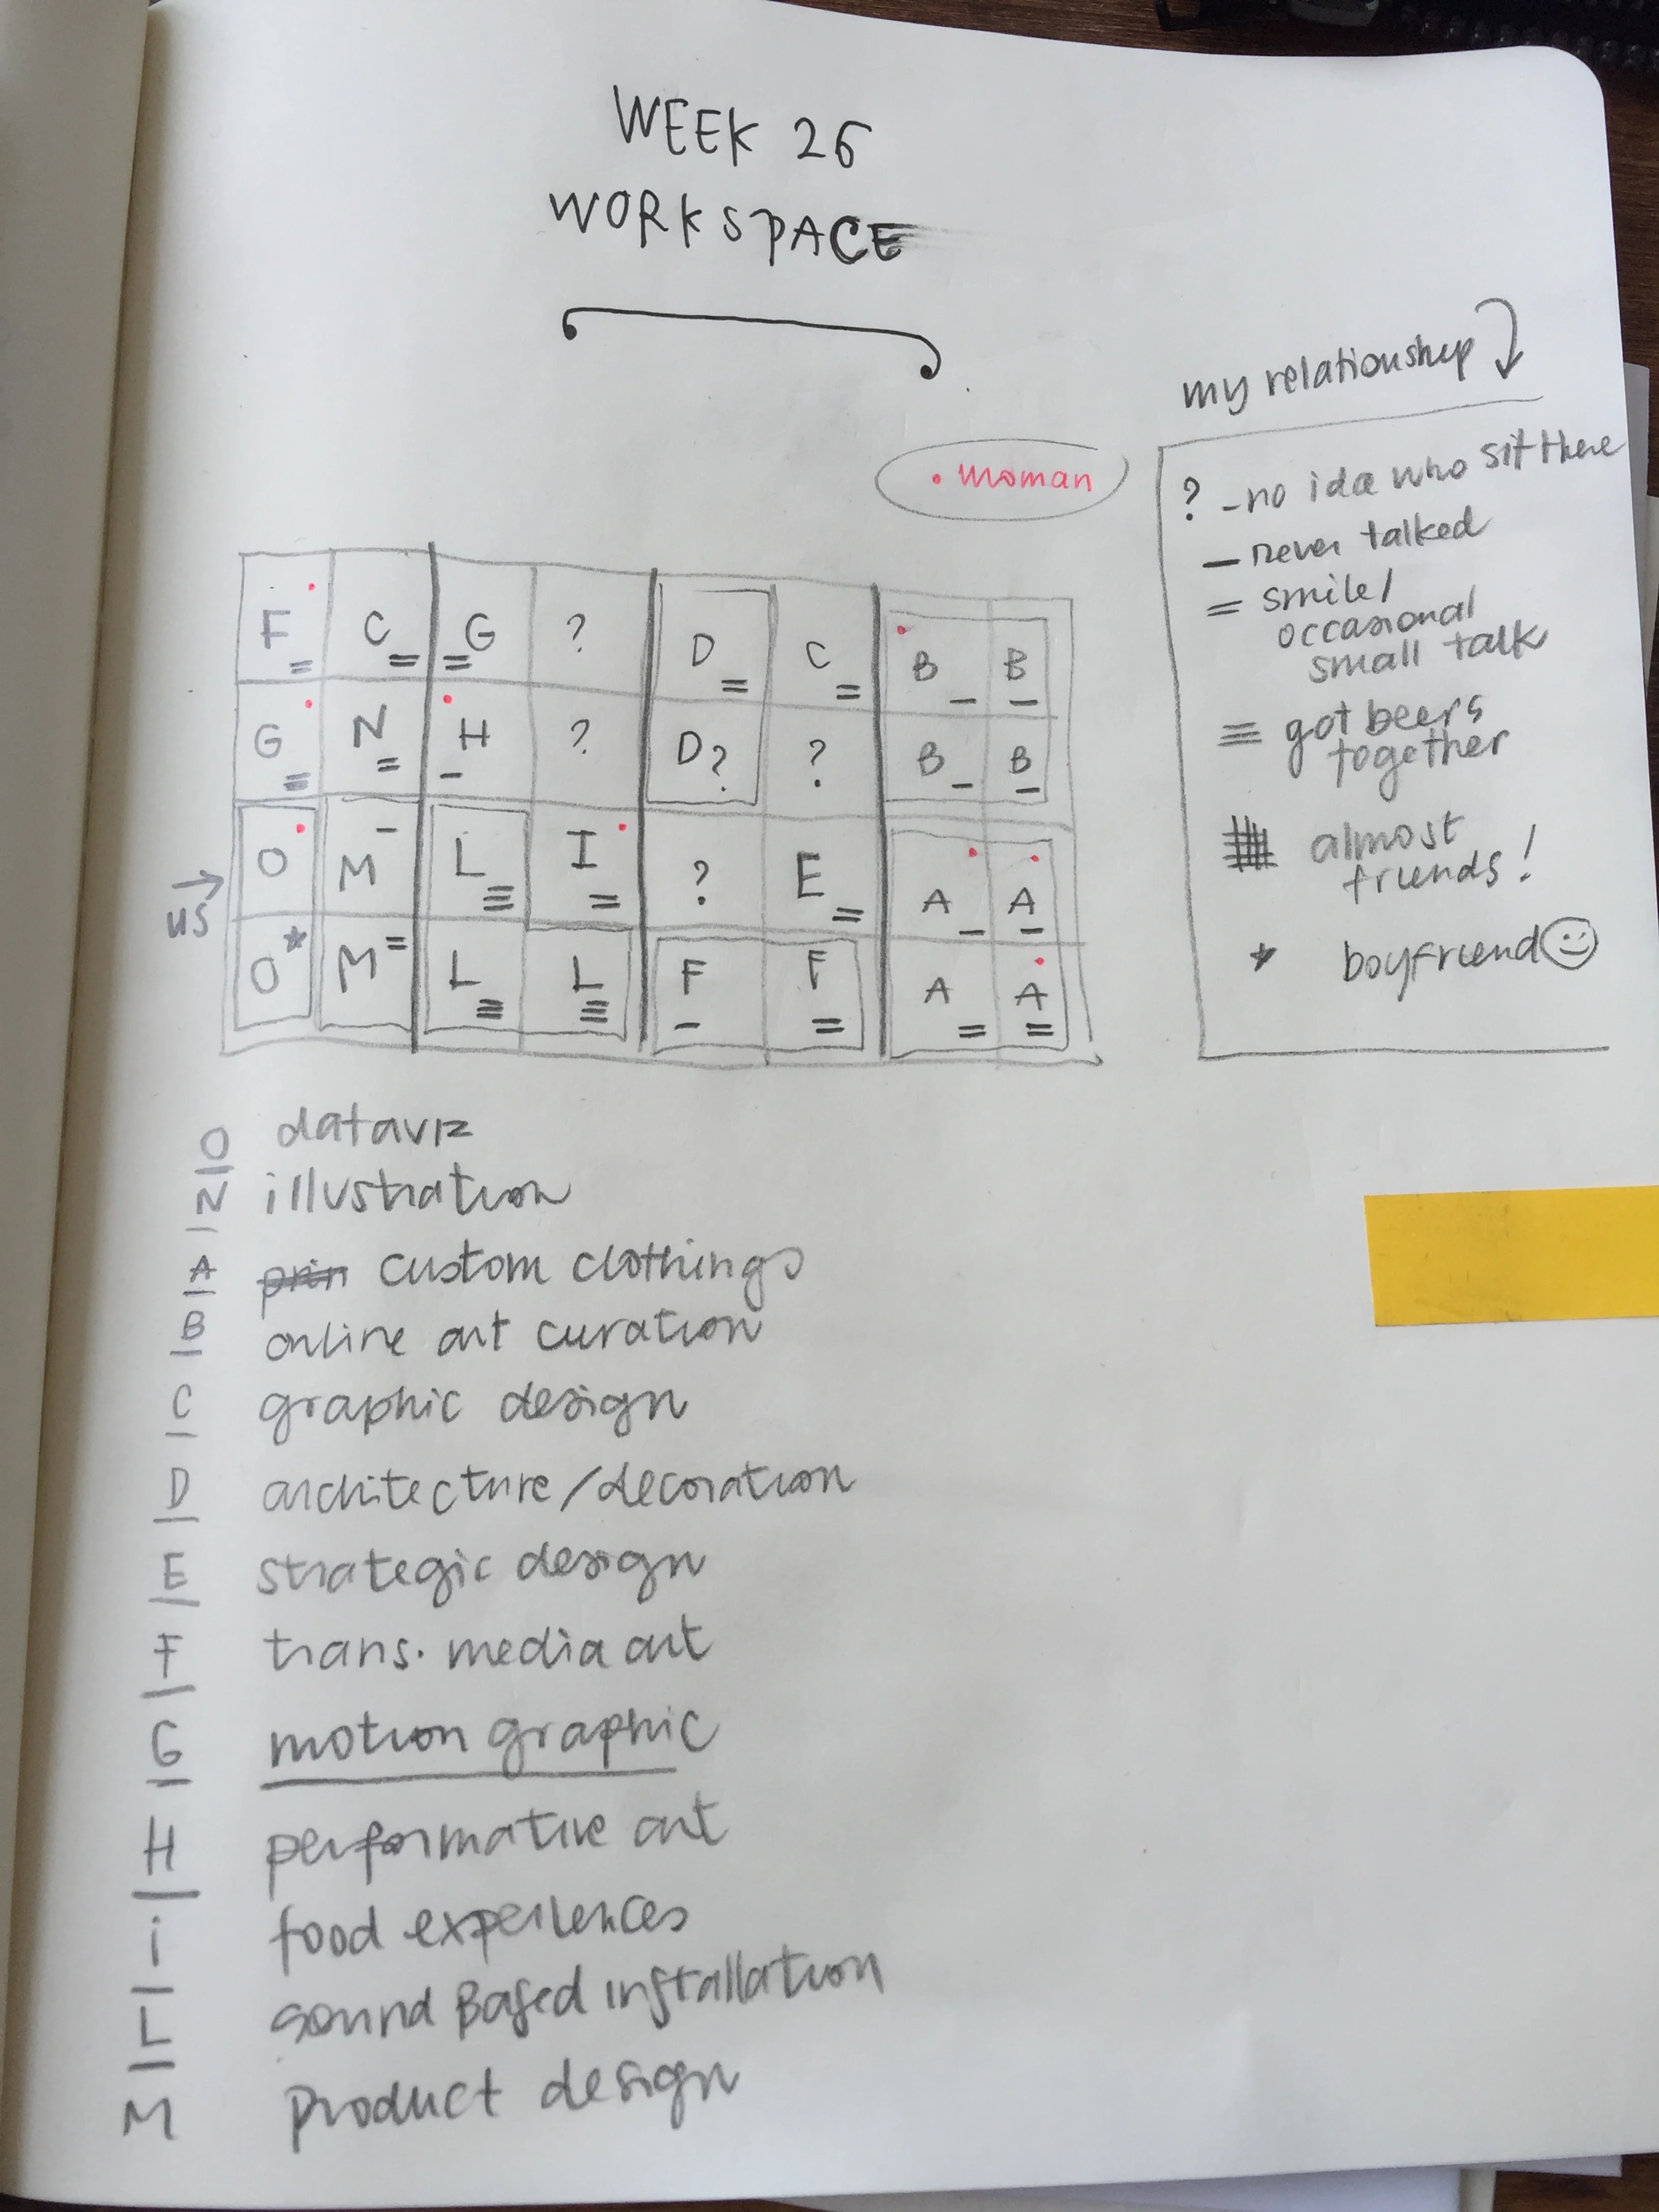 WEEK 26
WORKSPACE
my relationship
• woman
? - no idea who sit there
— never talked
= smile/
occasional
small talk
≡ got beers
together
almost
friends!
★ boyfriend
F = C = = G ? D = C = B — B —
G = N = H — ? D? ? B — B —
O M — L ≡ I = ? E = A — A —
us
O ★ M = L ≡ L ≡ F — F = A = A =
O dataviz
N illustration
A prin custom clothings
B online art curation
C graphic design
D architecture/decoration
E strategic design
F trans. media art
G motion graphic
H performative art
i food experiences
L sound Based installation
M product design